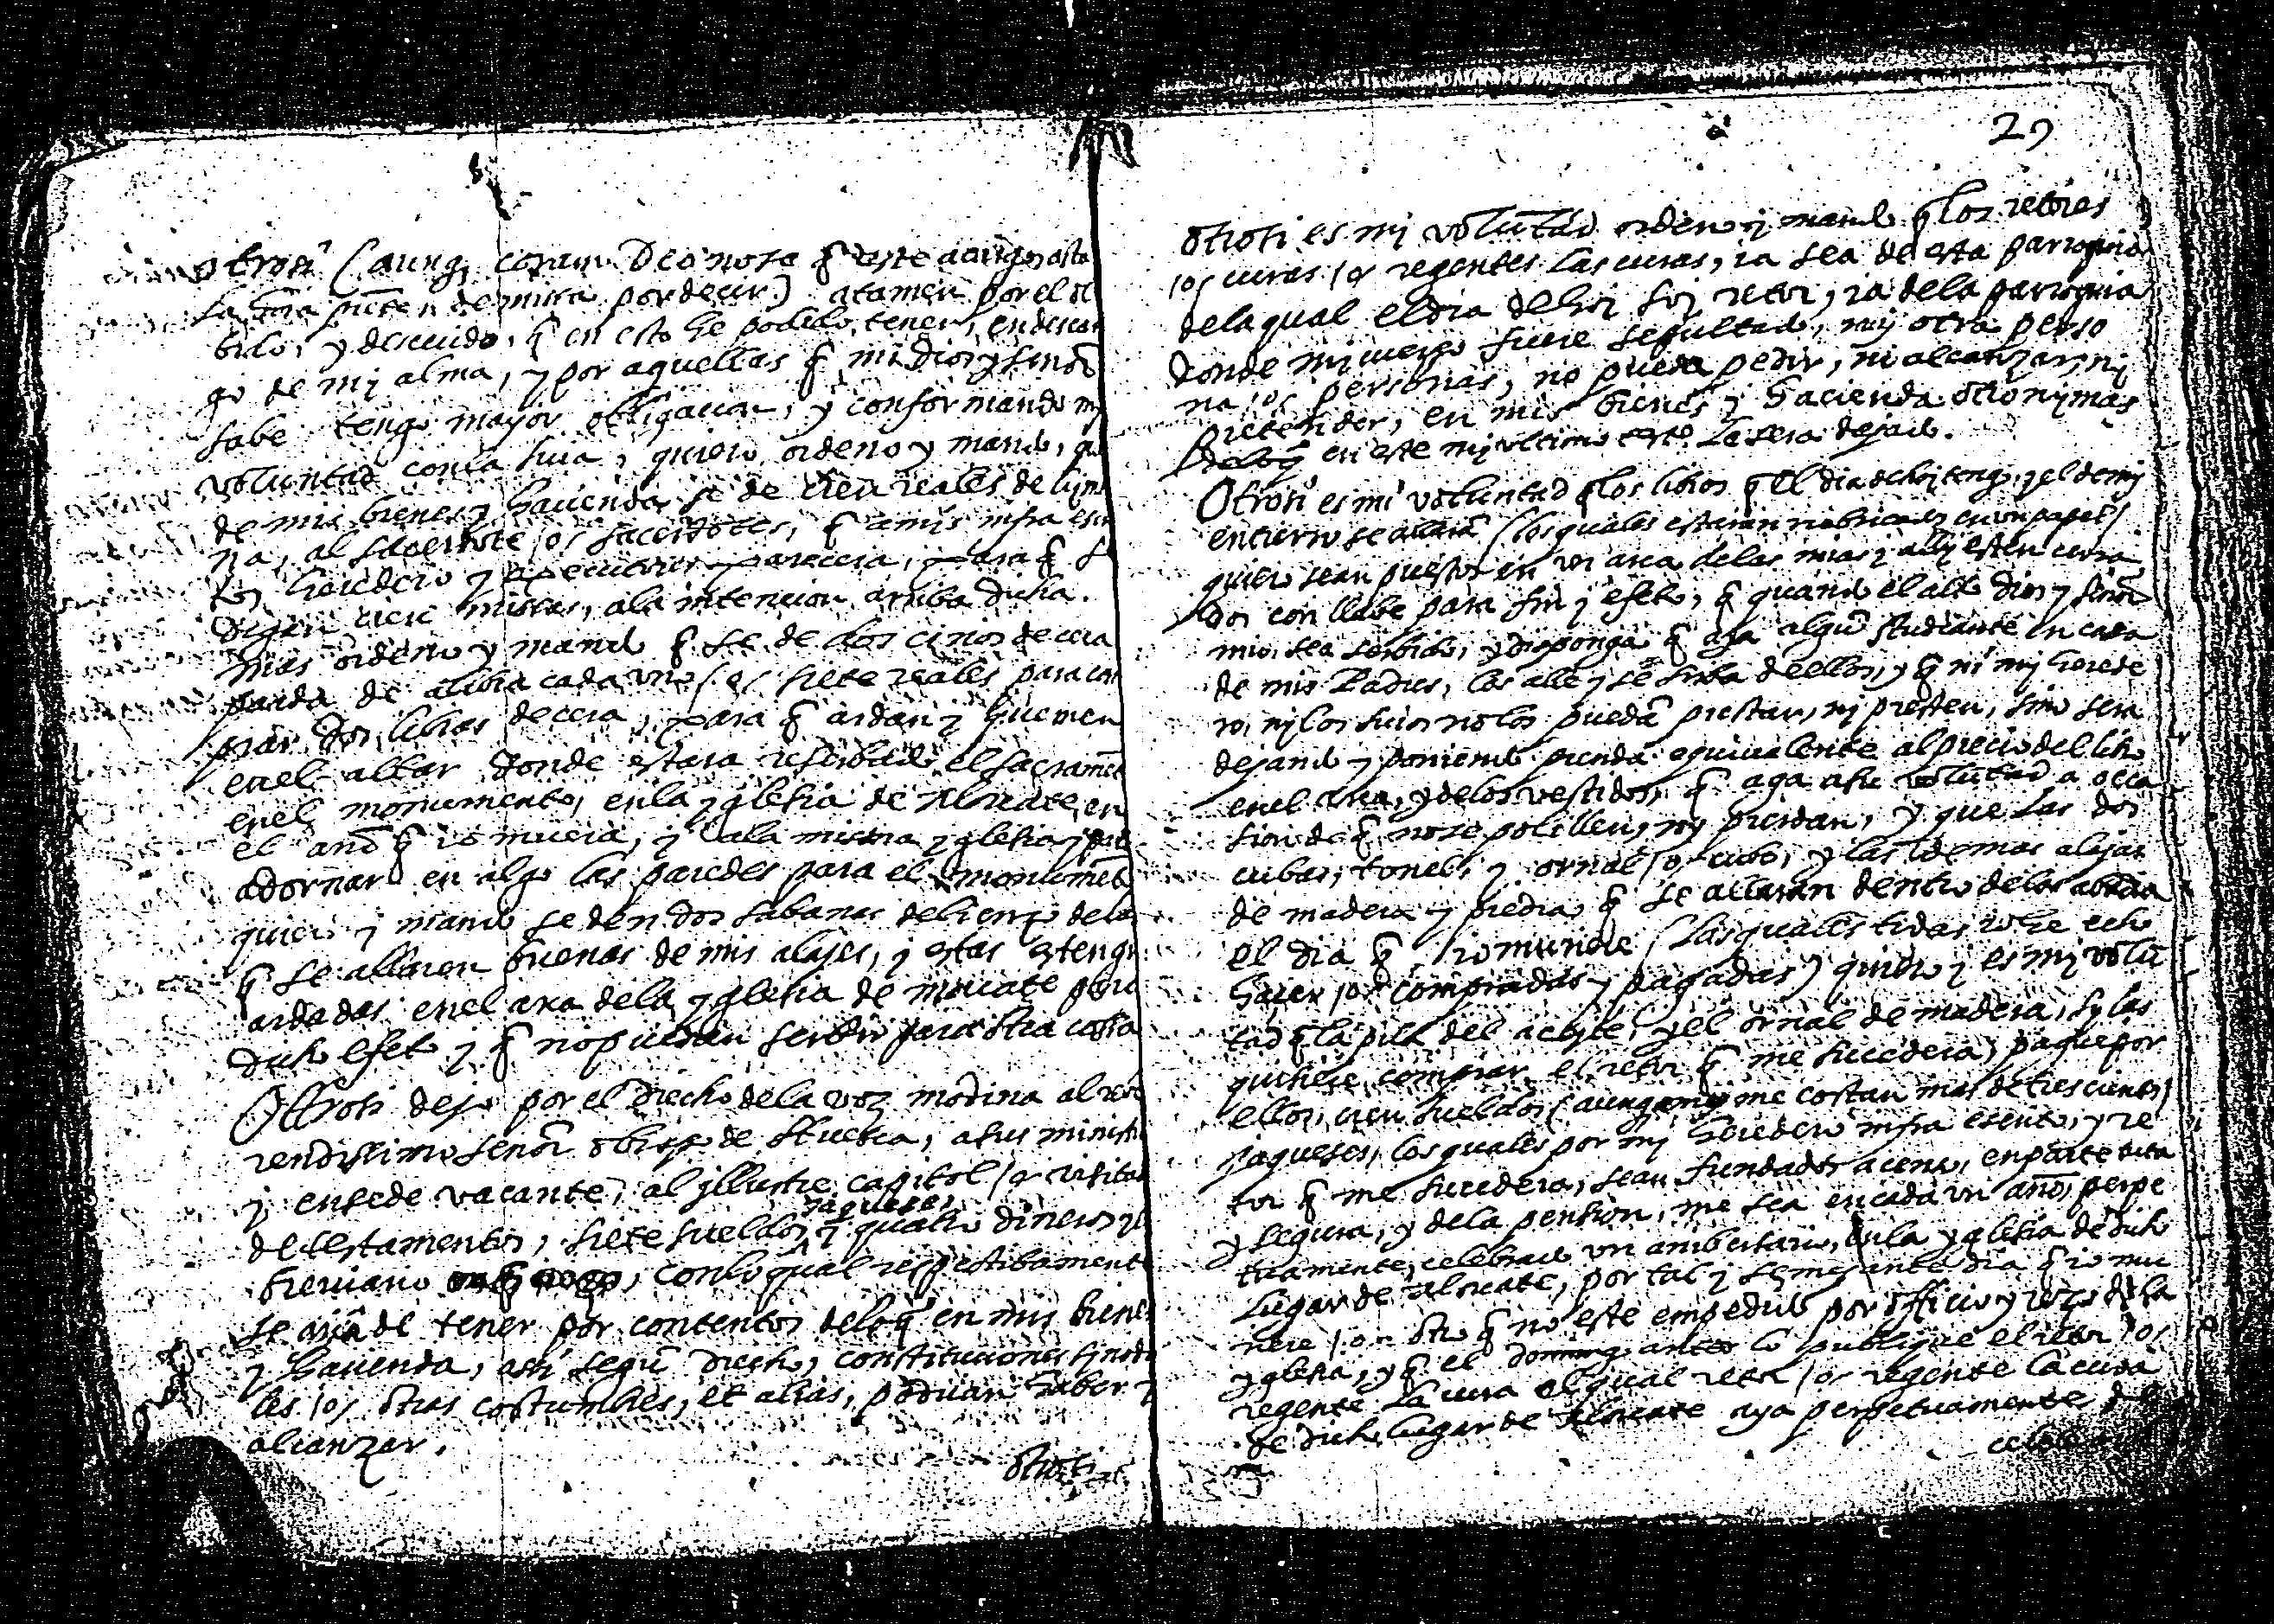 otrosi (aunq̃ coram Deo no se q̃ este a cargo asta
la ora pñte de missa por decir) atamen por el ol
bido, y descuido, q̃ en esto he podido tener, en descar
go de mi alma, y por aquellas q̃ mi Dios y señor
sabe tengo mayor obligacion, y conformando my
voluntad con la suia, quiero ordeno y mando, que
de mis bienes y hacienda se de cien reales de lymos
na, al sacerdote /o/ sacerdotes, q̃ a mis infra escri
tos heredero y executores parecera, para q̃ se
digan cien missas, a la intencion arriba dicha.
mas ordeno y mando q̃ se de dos cirios de cera
parda de a libra cada uno /o/ siete reales para com
prar dos libras de cera, para q̃ ardan y quemen
en el altar donde estara reserbado el sacramẽto
en el monumento, en la yglesia de Alneate, en
el año q̃ io muera, y a la misma yglesia para
adornar en algo las paredes para el monumẽto
quiero y mando se den dos sabanas de lienço de las
q̃ se allaren buenas de mis alajes, y estas esten gu
ardadas en el arca de la yglesia de Alneate para
dicho efeto y q̃ no puedan serbir para otra cossa
Otrosi dejo por el drecho de la voz modina al rebe
rendissimo señor obispo de Huesca, a sus ministros
y en sede vacante, al yllustre capitol /o/ visitador
jaqueses
de testamentos, siete sueldos y quatro dineros y el
breviario, con lo qual respectibamente
se aiã de tener por contentos de loq̃ en mis bienes
y hacienda, asi segũ drecho, constituciones sinoda
les /o/ otras costumbres, et alias, podrian haber y
alcanzar.
otrosi
29
otrosi es mi volũtad ordeno y mando q̃ los retores
/o/ curas /o/ regentes las curas, ia sea de esta parroquia
de la qual el dia de hoi soi retor, ia de la parroquia
donde mi cuerpo fuere sepultado, ny otra perso
na /o/ personas, no pueda pedir, ni alcanzar, ni
pretender, en mis bienes y hacienda otro ny mas
de loq̃ en este mi ultimo testo. la sera dejado.
Otrosi es mi voluntad q̃ los libros q̃ el dia de hoi tengo, y el de my
entierro se allarã (los quales estaran rubricados en un papel)
quiero sean puestos en un arca de las mias y alli esten cerra
dos con llabe para fin y efeto, q̃ quando el alto Dios y señor
mio, sea serbido, y disponga q̃ aya algũ studiante en casa
de mis Padres, los alle y se sirba de ellos, y q̃ ni mi herede
ro, ni los suios no los puedã prestar, ni presten, sino sera
dejando y poniendo prenda equivalente al precio del libro
en el arca, y de los vestidos, q̃ aga a su volũtad a oca
sion de q̃ no se polillen, ny pierdan, y que las dos
cubas, tonel, y ornal /o/ cubo, y las demas alajas
de madera y piedra q̃ se allaran dentro de la abadia
el dia q̃ io muriere (las quales todas io he echo
hacer /o/ compradas y pagadas) quiero y es mi volũ
tad q̃ la pila del aceyte, y el ornal de madera, si las
quisiere comprar el retor q̃ me sucedera, pague por
ellos, cien sueldos (aunq̃ a my me costan mas de trescientos)
jaqueses, los quales por mi heredero infra escrito, y re
tor q̃ me sucedera, sean fundados a censo, en parte tuta
y segura, y de la pension, me sea en cada un año, perpe
tuamente, celebrado un anibersario, en la yglesia de dicho
lugar de Alneate, por tal y semejante dia q̃ io mu
riere /o/ otro q̃ no este empedido por officio y rezo de la
yglesia, y q̃ el domingo antes lo publique el retor /o/
regente la cura el qual retor /o/ regente la cura
de dicho lugar de Alneate aya perpetuamente de